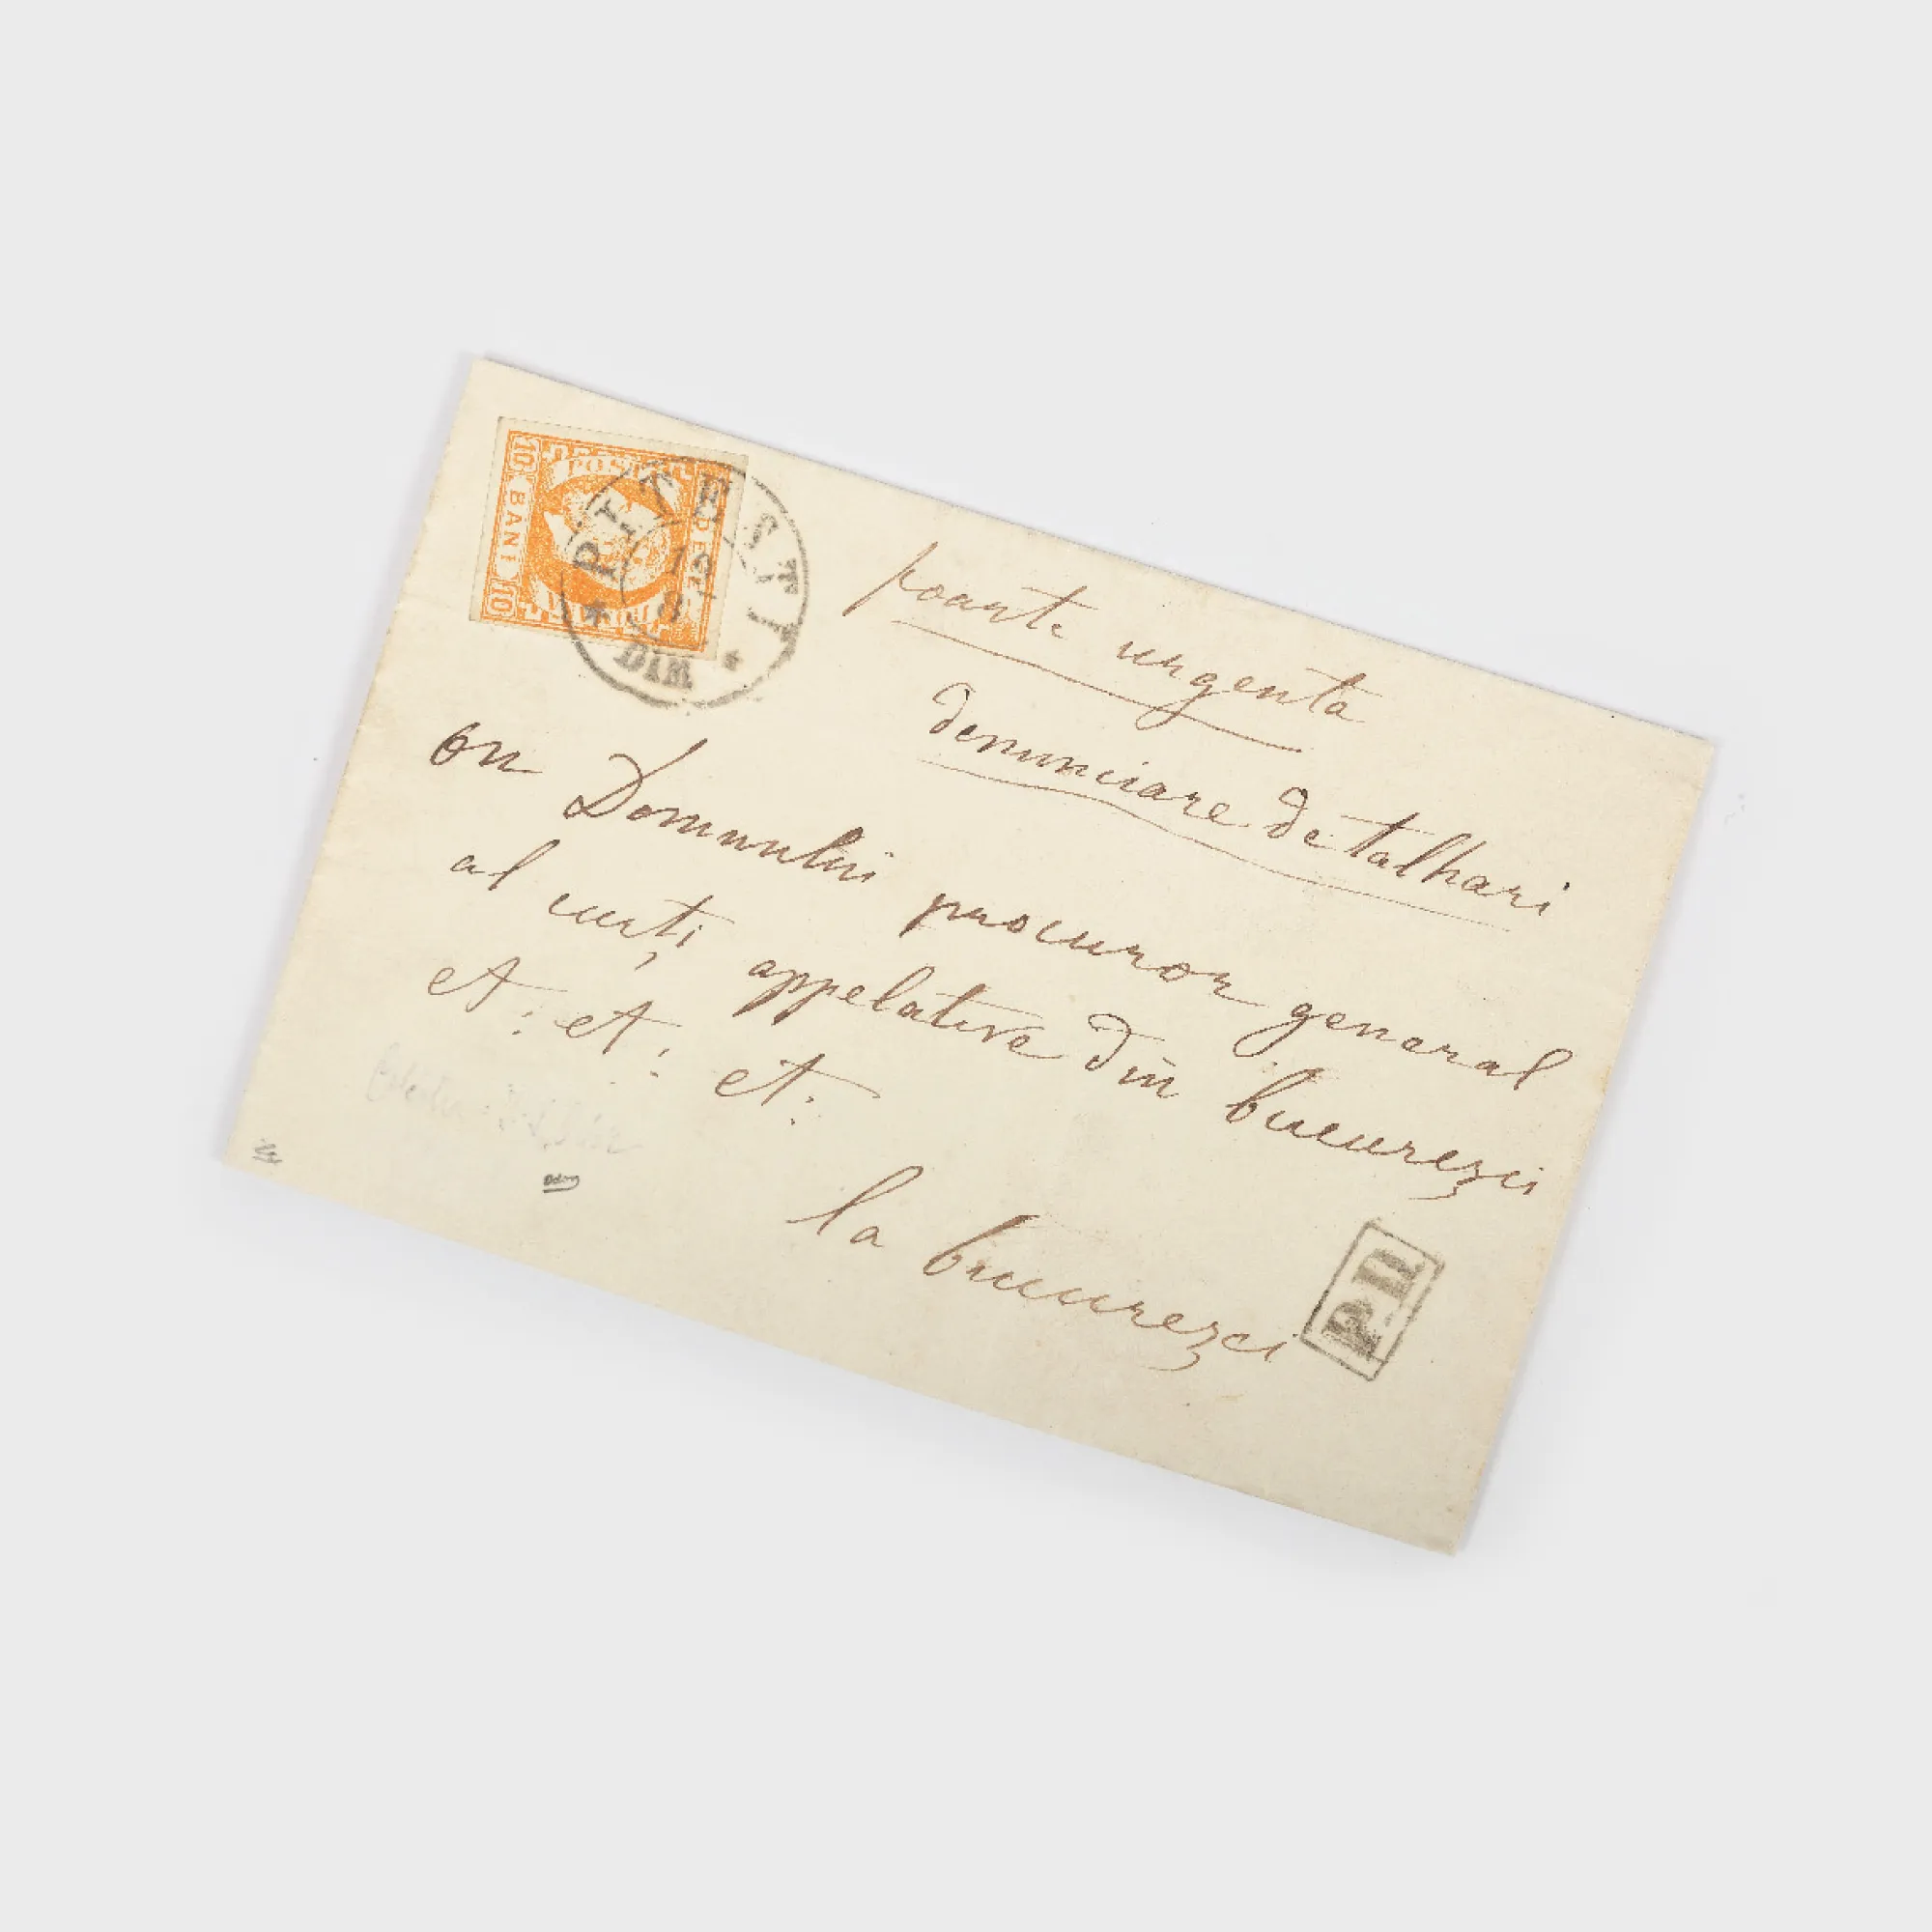 10 BANI 10
PITESTI
12
8
DIM
foarte urgenta
denunciare de talhari
on Domnului procuror general
al curți appelative din bucuresci
et: et: et:
la bucuresci
P.D.